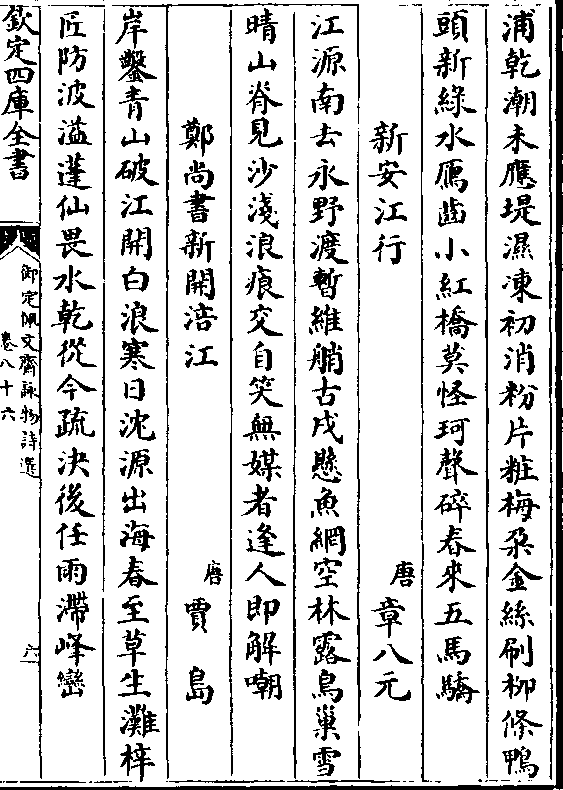 浦乾潮未應堤濕凍初消粉片粧梅朶金絲刷柳條鴨
頭新綠水鴈齒小紅橋莫怪珂聲碎春來五馬驕
新安江行
唐章八元
江源南去永野渡暫維艄古戍懸魚網空林露鳥巢雪
晴山脊見沙淺浪痕交自笑無媒者逢人即解嘲
鄭尚書新開涪江
唐賈島
岸鑿青山破江開白浪寒日沈源出海春至草生灘梓
匠防波溢蓬仙畏水乾從今疏決後任雨滯峰巒
欽定四庫全書
御定佩文齋詠物詩選
卷八十六
六